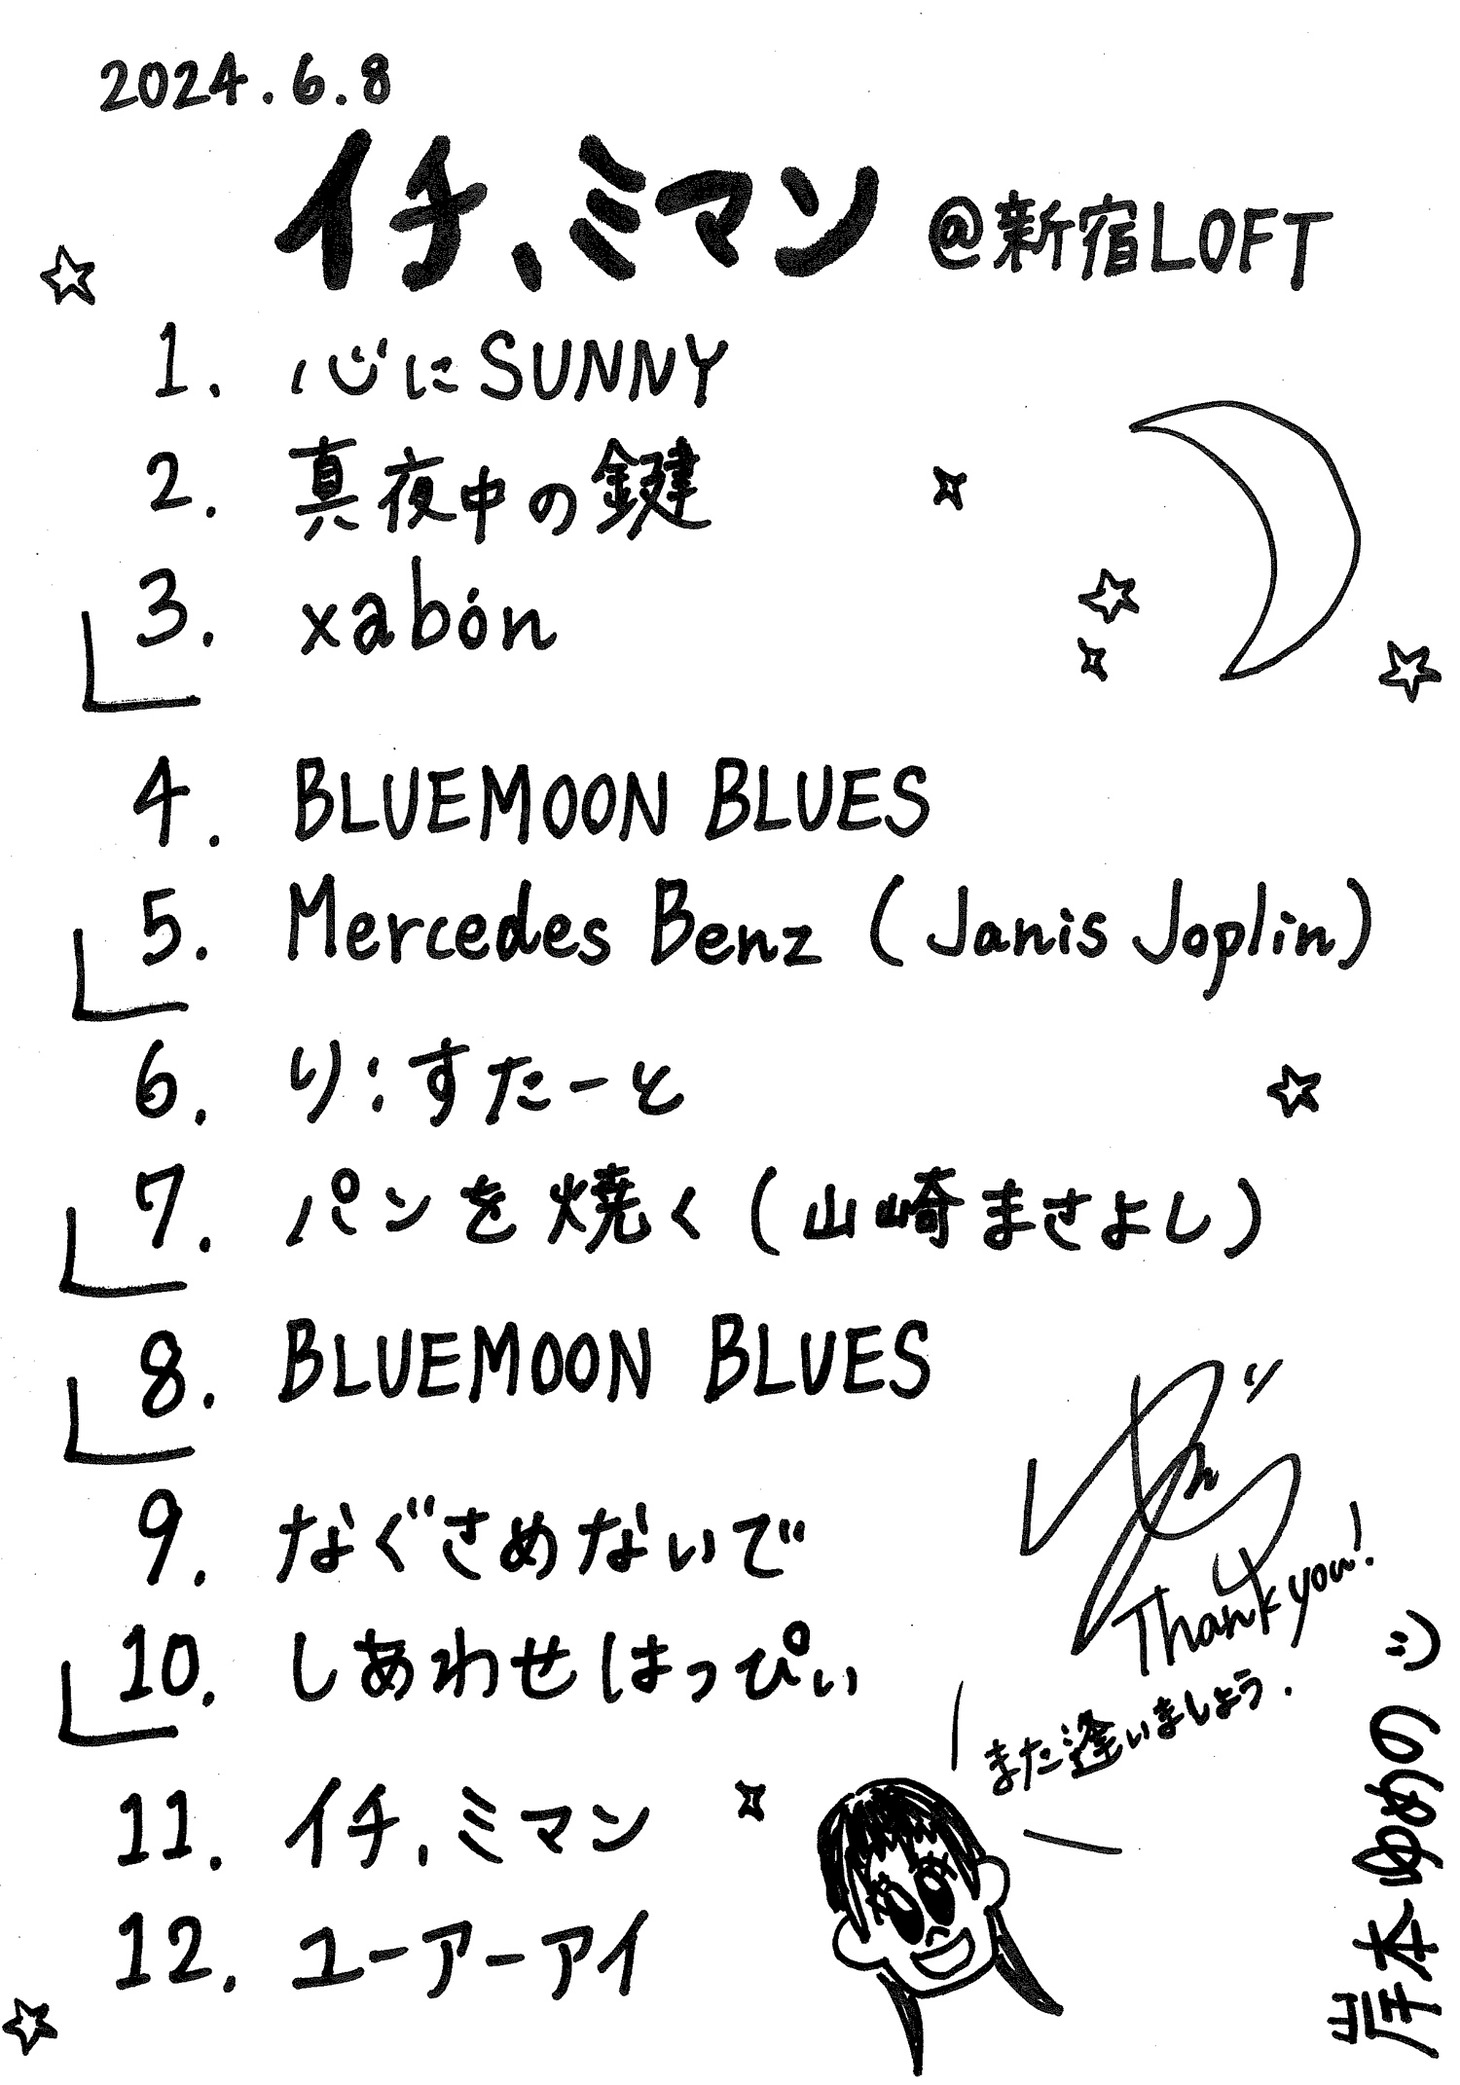 2024.6.8
イチ、ミマン @新宿LOFT
1. 心にSUNNY
2. 真夜中の鍵
3. xabón
4. BLUEMOON BLUES
5. Mercedes Benz (Janis Joplin)
6. り:すたーと
7. パンを焼く(山崎まさよし)
8. BLUEMOON BLUES
9. なぐさめないで
10. しあわせはっぴぃ
11. イチ、ミマン
12. ユーアーアイ
Thank you!
また逢いましょう.
岸本ゆめの :)